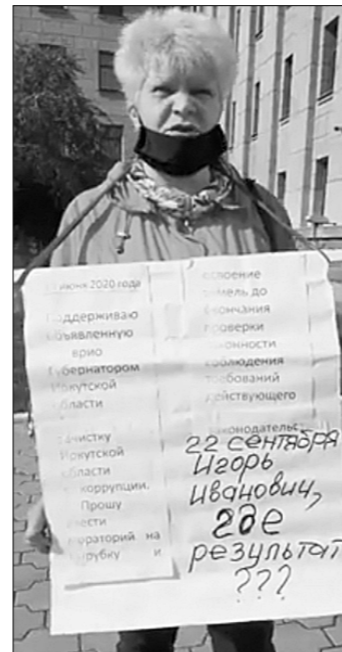 июня 2020 года
Поддерживаю
объявленную
врио
Губернатором
Иркутской
области
зачистку
Иркутской
области
коррупции.
Прошу
ввести
мораторий на
вырубку и
освоение
земель до
окончания
проверки
законности
соблюдения
требований
действующего
22 сентября
Игорь
Иванович,
где
результат
???